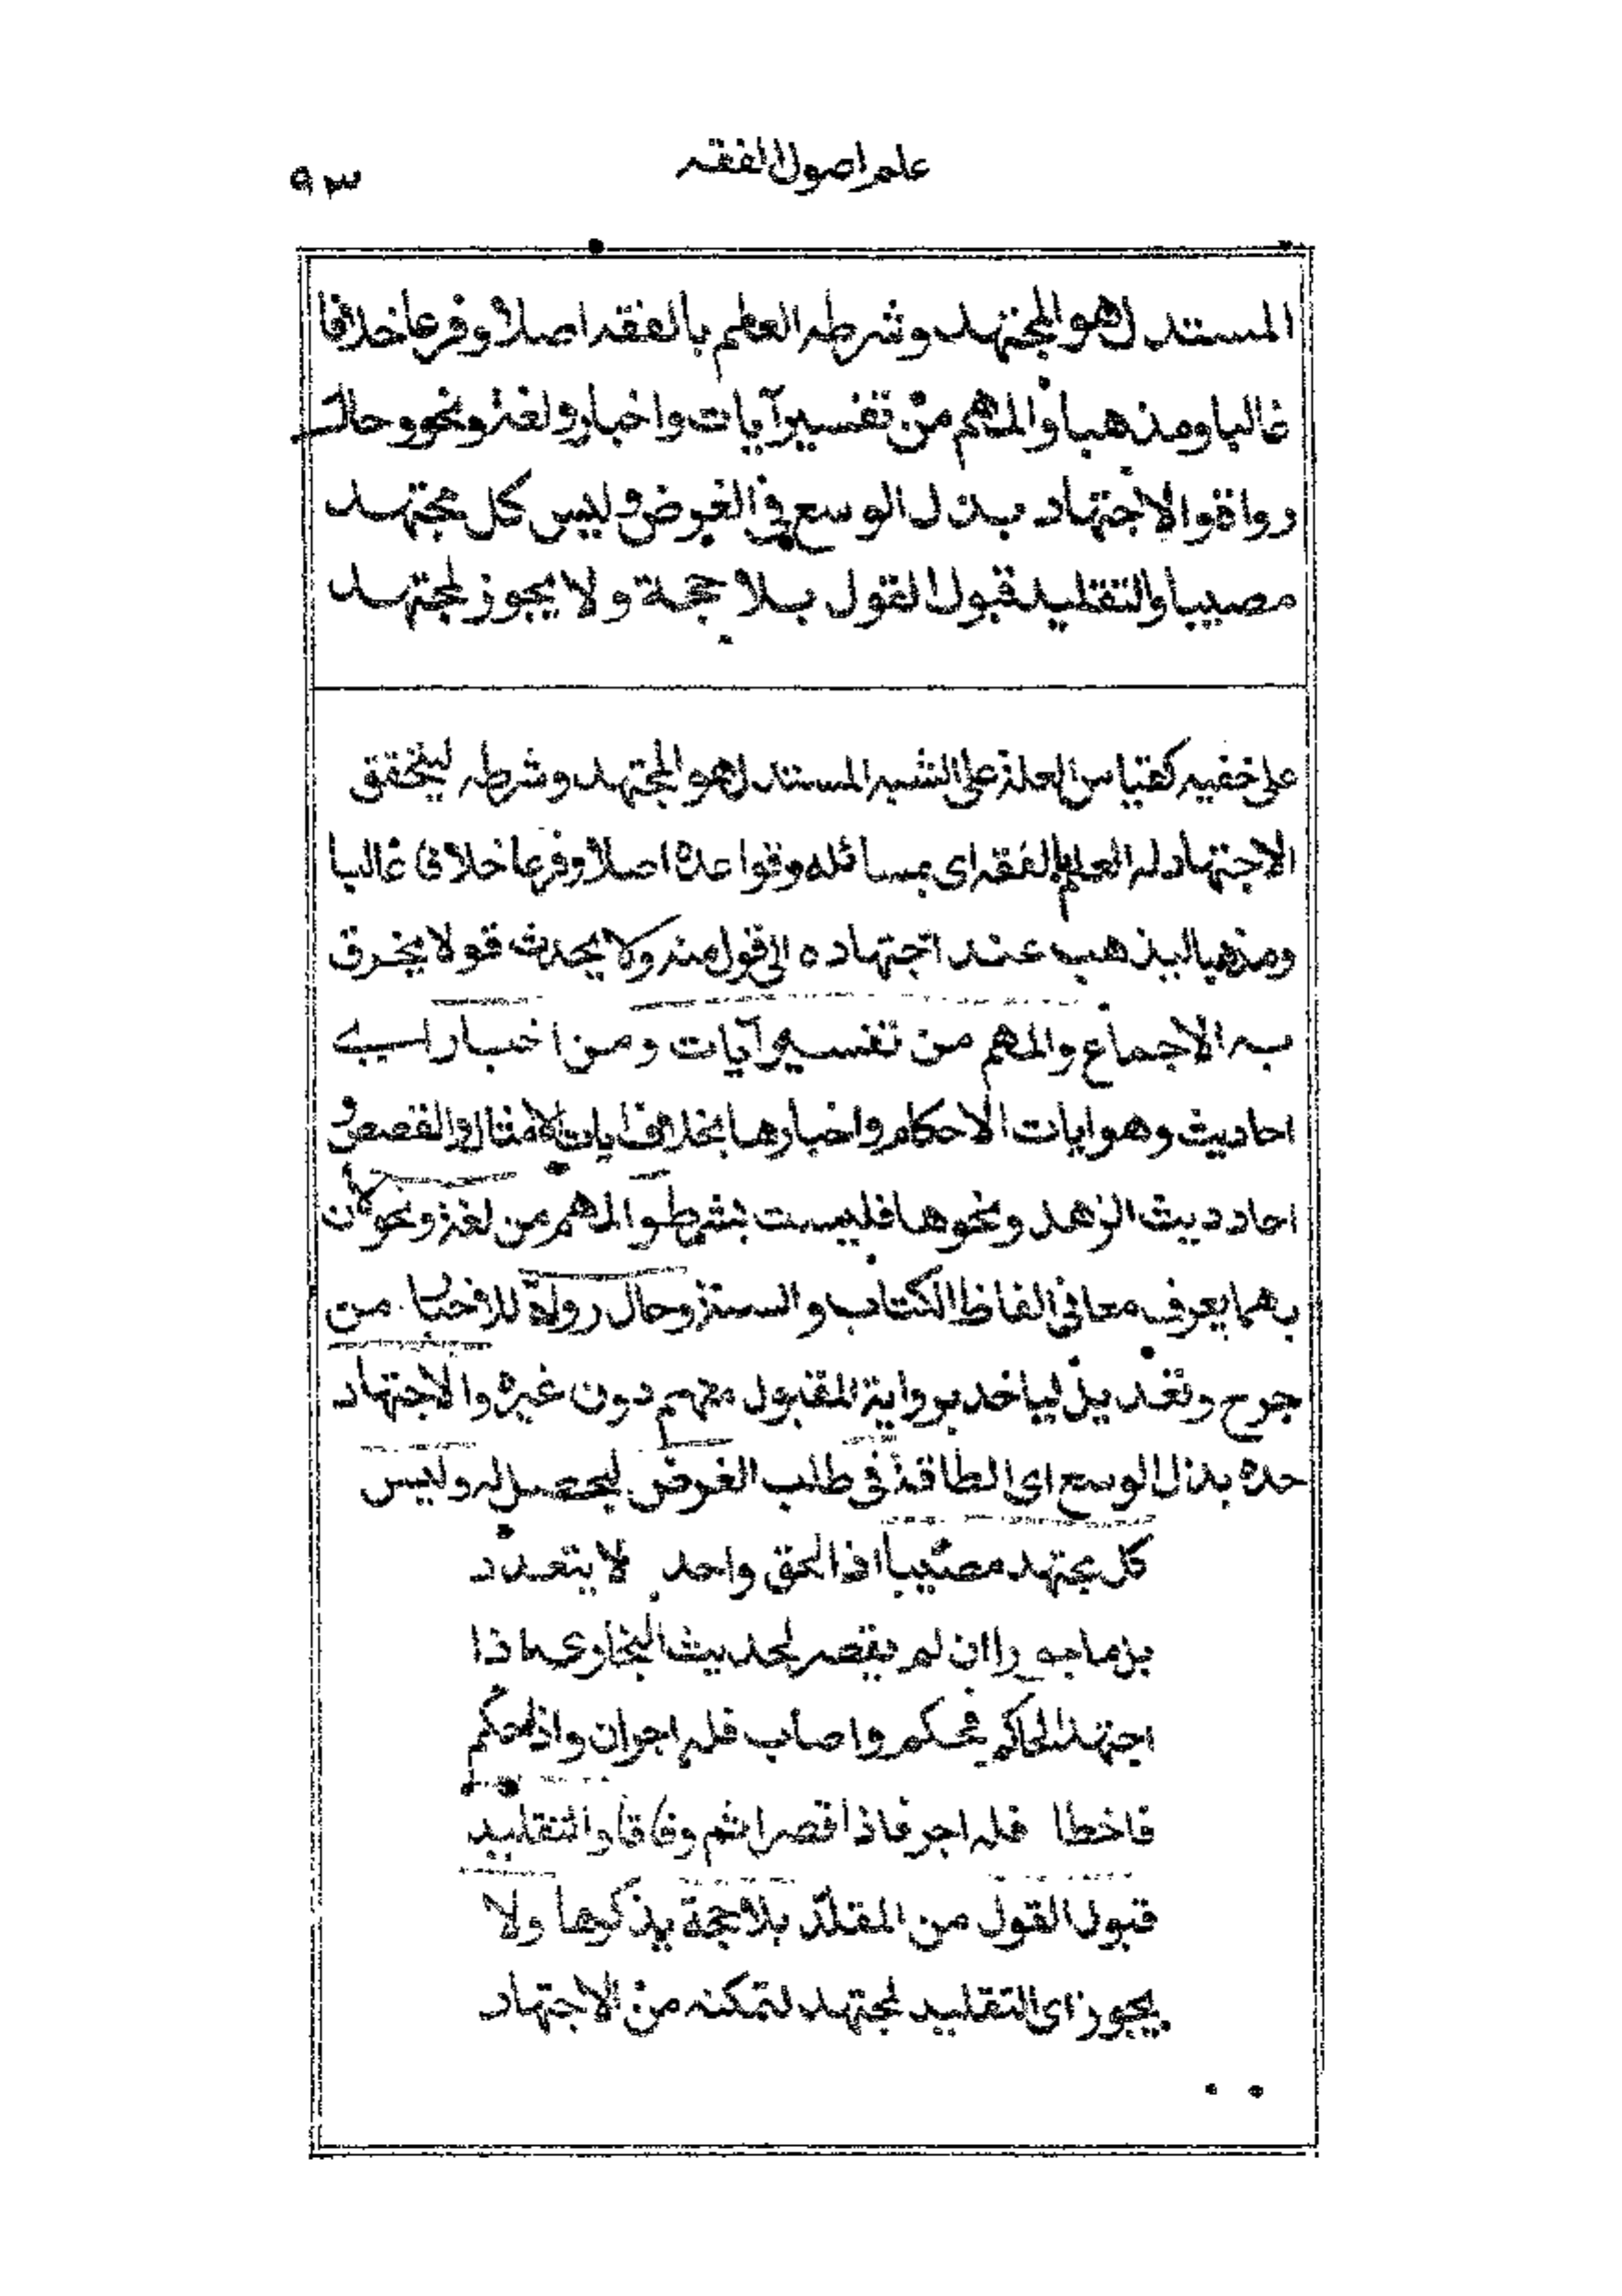 علم اصول الفقه
٩٣
المستدل هو المجتهد وشرطه العلم بالفقه اصلا وفرعا خلافا
غالبا ومذهبا والمهم من تفسير آيات واخبار ولغة ونحو وحال
رواة والاجتهاد بذل الوسع في الغرض وليس كل مجتهد
مصيبا والتقليد قبول القول بلا حجة ولا يجوز لمجتهد
على خفيه كقياس العلة على الشبه المستدل هو المجتهد وشرطه ليتحقق
الاجتهاد له العلم بالفقه اى بمسائله وقواعده اصلا وفرعا خلافا غالبا
ومذهبا ليذهب عند اجتهاده الى قول منه ولا يحدث قولا يخرق
به الاجماع والمهم من تفسير آيات ومن اخبار اى
احاديث وهو ايات الاحكام واخبارها بخلاف ايات الامثال والقصص و
احاديث الزهد ونحوها فليست بشرط والمهم من لغة ونحو لان
بهما يعرف معانى الفاظ الكتاب والسنة وحال رواة للاخبار من
جرح وتعديل لياخذ برواية المقبول منهم دون غيره والاجتهاد
حده بذل الوسع اى الطاقة فى طلب الغرض ليحصل له وليس
كل مجتهد مصيبا اذ الحق واحد لا يتعدد
بل ماجورا ان لم يقصر لحديث البخارى اذا
اجتهد الحاكم فحكم واصاب فله اجران واذا حكم
فاخطا فله اجر فاذا قصر اثم وفاقا والتقليد
قبول القول من المقلد بلا حجة يذكرها ولا
يجوز اى التقليد لمجتهد لتمكنه من الاجتهاد